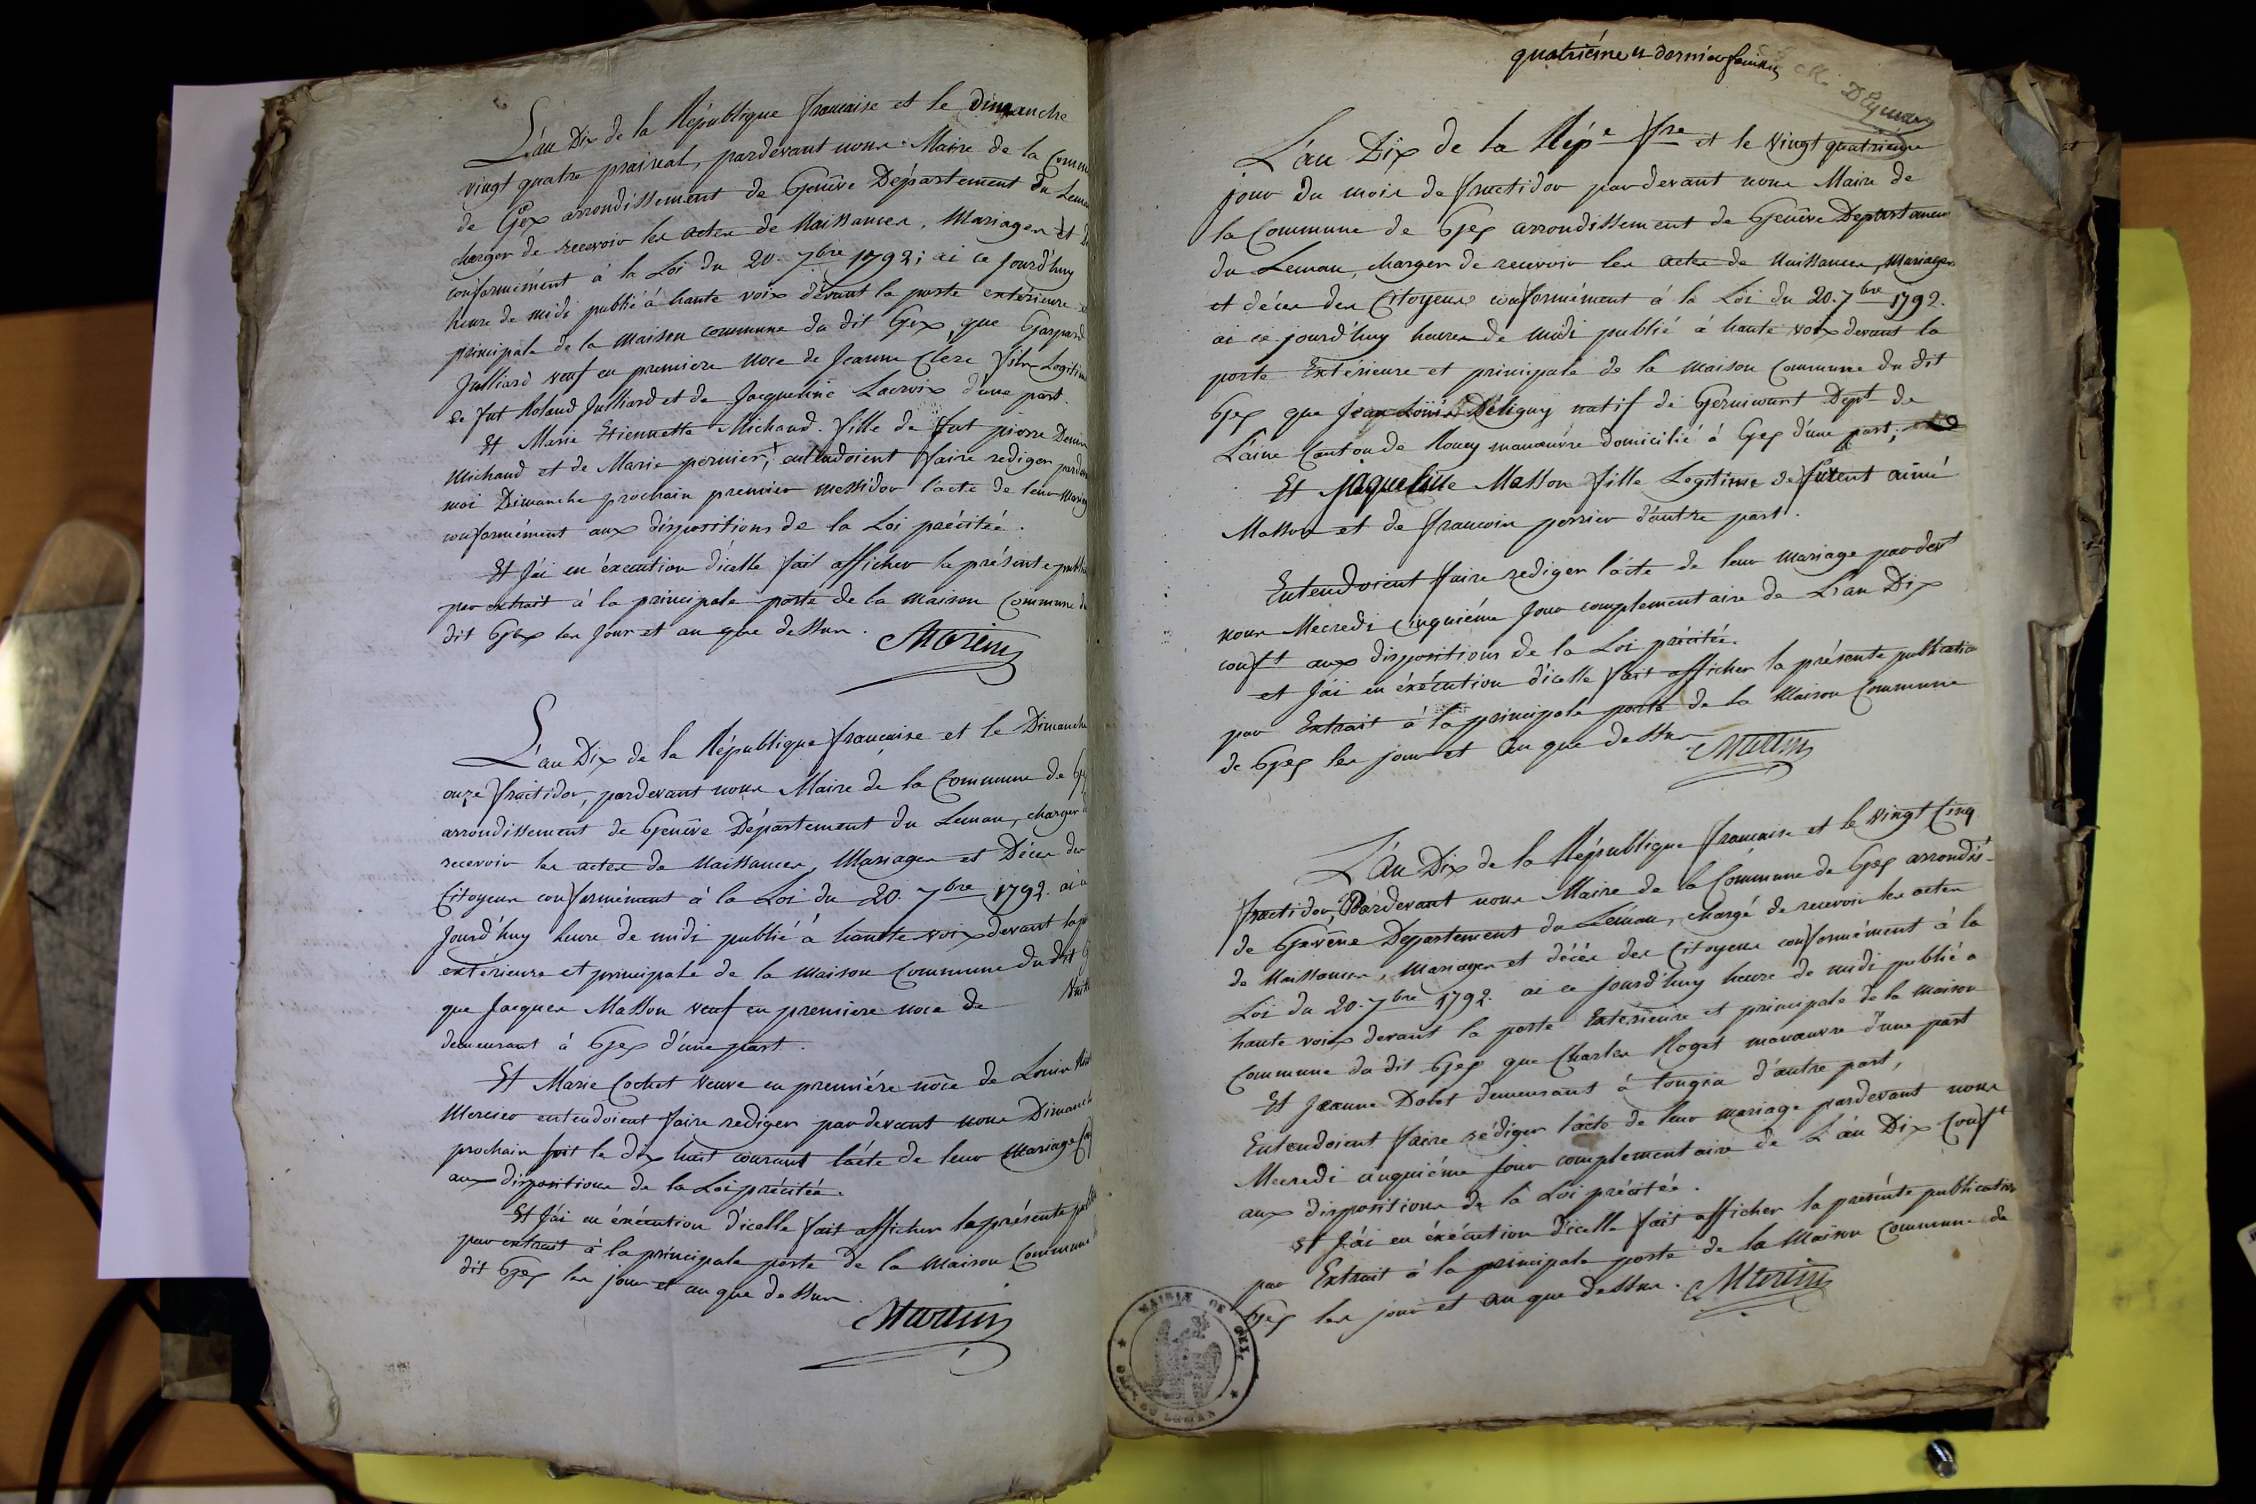 L'an Dix de la République francaise et le Dimanche
vingt quatre prairial, pardevant nous Maire de la Comm
de Gex arrondissement de Genêve Département du Lema
charger de recevoir les actes de Naissances, Mariages et D
conformément à la Loi du 20. 7bre 1792; ai ce jourd'huy
heure de midi publié à haute voix devant la porte extérieure et
principale de la maison commune du dit Gex, que Gaspard
Julliard veuf en premiere noce de Jeanne Clerc fils Legitim
de fut Roland Julliard et de Jacqueline Lacroix d'une part.
Et Marie Etiennette Michaud fille de fut pierre Denis
Michaud et de Marie pernier, entendoient faire rediger pard
moi Dimanche prochain premier messidor l'acte de leur Mariag
conformément aux dispositions de la Loi précitée.
Et J'ai en éxecution d'icelle fait afficher la présente publi
par extrait à la principale porte de la maison Commune du
dit Gex les jour et an que dessus.
L'an Dix de la République francaise et le Dimanche
onze fructidor, pardevant nous Maire de la Commune de G
arrondissement de Genêve Département du Leman, charger d
recevoir les actes de Naissances, Mariages et Décès des
Citoyens conformément à la Loi du 20. 7bre 1792. ai c
Jourd'huy heure de midi publié à haute voix devant la p
exterieure et principale de la maison Commune du dit G
que Jacques Masson veuf en premiere noce de
demeurant à Gex d'une part.
Et Marie Cochet veuve en premiére nôce de Louis
Mercier entendoient faire rediger pardevant nous Dimanch
prochain soit le dix huit courant l'acte de leur Mariage
aux dispositions de la Loi précitée.
Et J'ai en éxécution d'icelle fait afficher la présente publi
par extrait à la principale porte de la Maison Commune
dit Gex les jour et an que dessus.
quatriéme et dernier feuillet
L'an Dix de la Répe fre et le vingt quatriéme
jour du mois de fructidor pardevant nous Maire de
la Commune de Gex arrondissement de Genêve Departemen
du Leman, charger de recevoir les actes de Naissances, Mariages
et décès des Citoyens conformément à la Loi du 20. 7bre 1792.
ai ce jourd'huy heures de midi publié à haute voix devant la
porte Extérieure et principale de la maison Commune du dit
Gex que Jean Louis Déligny natif de Gernicourt Dept de
L'aine Canton de Roucy manœuvre domicilié à Gex d'une part;
Et Jaqueline Masson fille Legitime de furent aimé
Masson et de francoise perrier d'autre part.
Entendoient faire rediger l'acte de leur mariage pardevt
nous Mecredi Cinquiéme Jour complementaire de L'an Dix
conft aux dispositions de la Loi précitée.
et J'ai en éxécution d'icelle fait afficher la présente publicatio
par Extrait à la principale porte de la Maison Commune
de Gex les jour et an que dessus
L'An Dix de la République francaise et le vingt Cinq
fructidor, Pardevant nous Maire de la Commune de Gex arrondis-
de Genêve Departement du Léman, chargé de recevoir les actes
de Naissances, Mariages et décès des Citoyens conformément à la
Loi du 20. 7bre 1792. ai ce jourd'huy heure de midi publié a
haute voix devant la porte Extérieure et principale de la maison
Commune du dit Gex que Charles Roget manœuvre d'une part
Et Jeanne Dobet demeurant à Tougin d'autre part,
Entendoient faire rédiger l'acte de leur mariage pardevant nous
Mecredi cinquiéme Jour complementaire de L'an Dix Conft
aux dispositions de la Loi précitée.
Et J'ai en éxécution d'icelle fait afficher la presénte publication
par Extrait à la principale porte de la Maison Commune de
Gex les jour et an que dessus.
MAIRIE DE GEX,
DU LEMAN